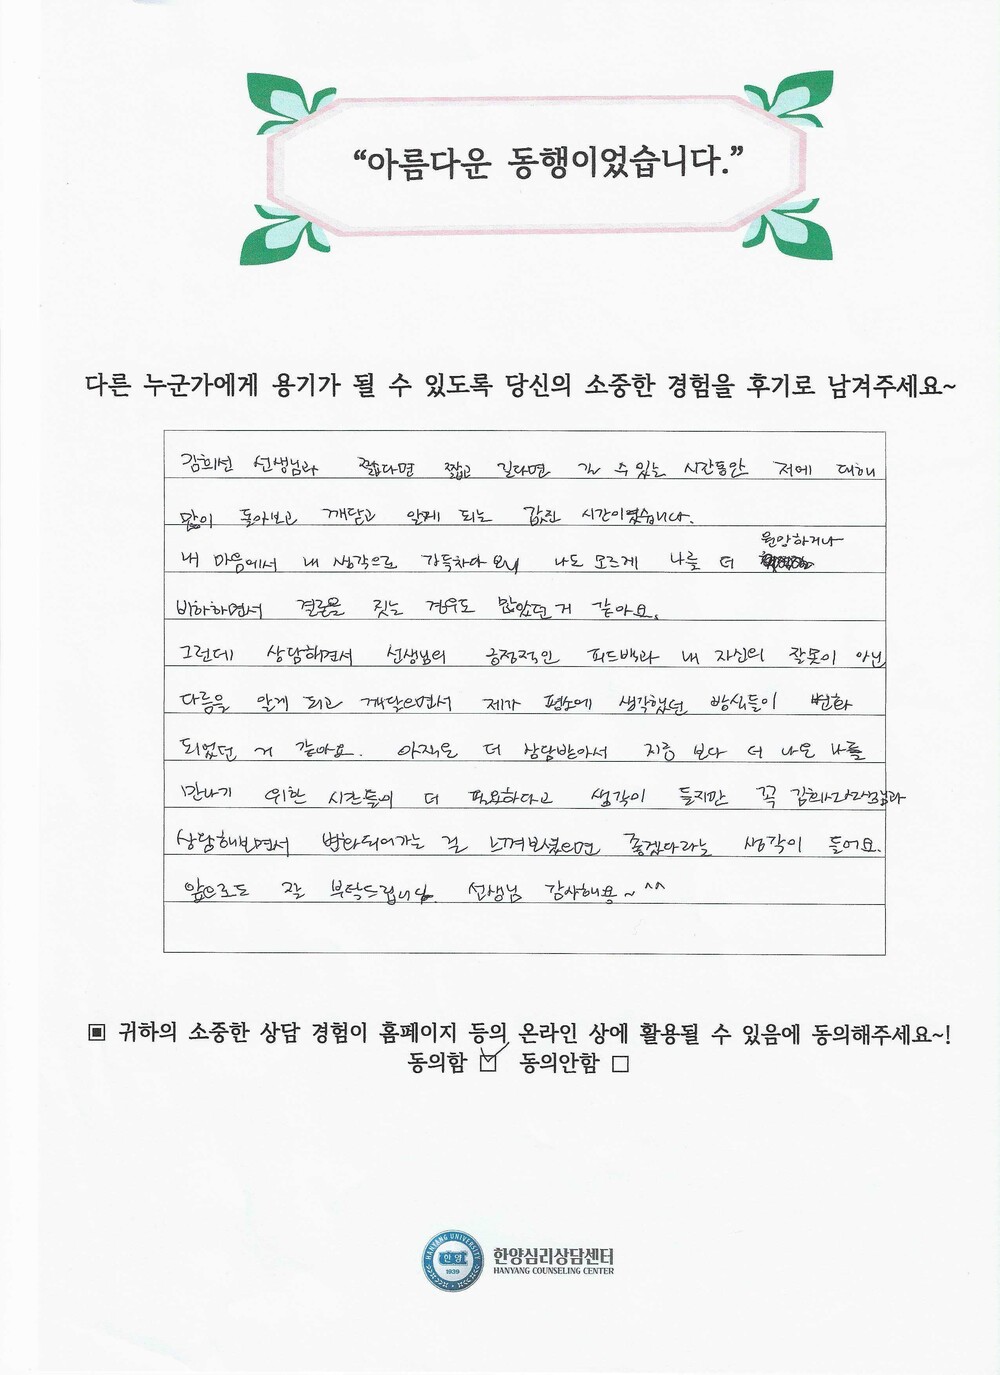 “아름다운 동행이었습니다.”
다른 누군가에게 용기가 될 수 있도록 당신의 소중한 경험을 후기로 남겨주세요~
김희선 선생님과 짧다면 짧고 길다면 길 수 있는 시간동안 저에 대해
많이 돌아보고 깨닫고 알게 되는 값진 시간이였습니다.
원망하거나
내 마음에서 내 생각으로 나도 모르게 나를 더
비하하면서 결론을 짓는 경우도 많았던 거 같아요.
그런데 상담하면서 선생님의 긍정적인 피드백과 내 자신의 잘못이 아닌
다름을 알게 되고 깨달으면서 제가 평소에 생각했던 방식들이 변화
되었던 거 같아요. 아직은 더 상담받아서 지금 보다 더 나은 나를
만나기 위한 시간들이 더 필요하다고 생각이 들지만 꼭
상담해보면서 변화되어가는 걸 느껴보셨으면 좋겠다라는 생각이 들어요.
앞으로도 잘 부탁드립니다. 선생님 감사해용~^^
▣ 귀하의 소중한 상담 경험이 홈페이지 등의 온라인 상에 활용될 수 있음에 동의해주세요~!
동의함 ☑ 동의안함 □
HANYANG UNIVERSITY
한양
1939
한양심리상담센터
HANYANG COUNSELING CENTER